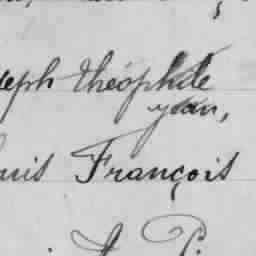 seph théophile
yean,
ouis François